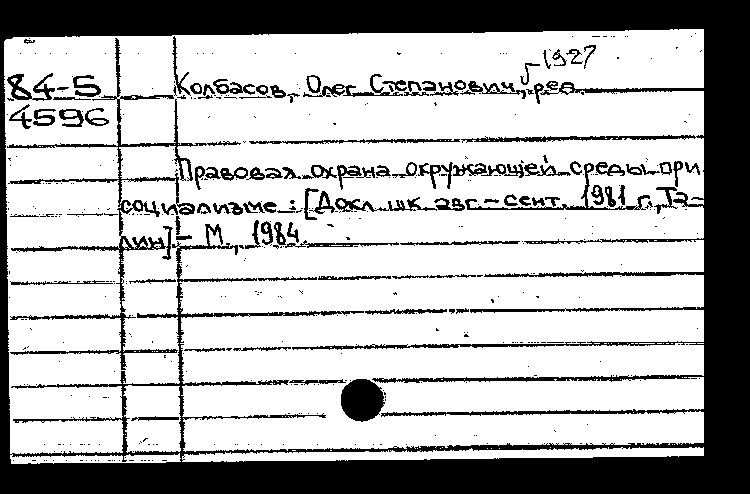 1927
84-5 Колбасов, Олег Степанович, ред.
4596
Правовая охрана окружающей среды при
социализме : [Докл. шк. авг. – сент. 1981 г., Та-
лин] – М., 1984.